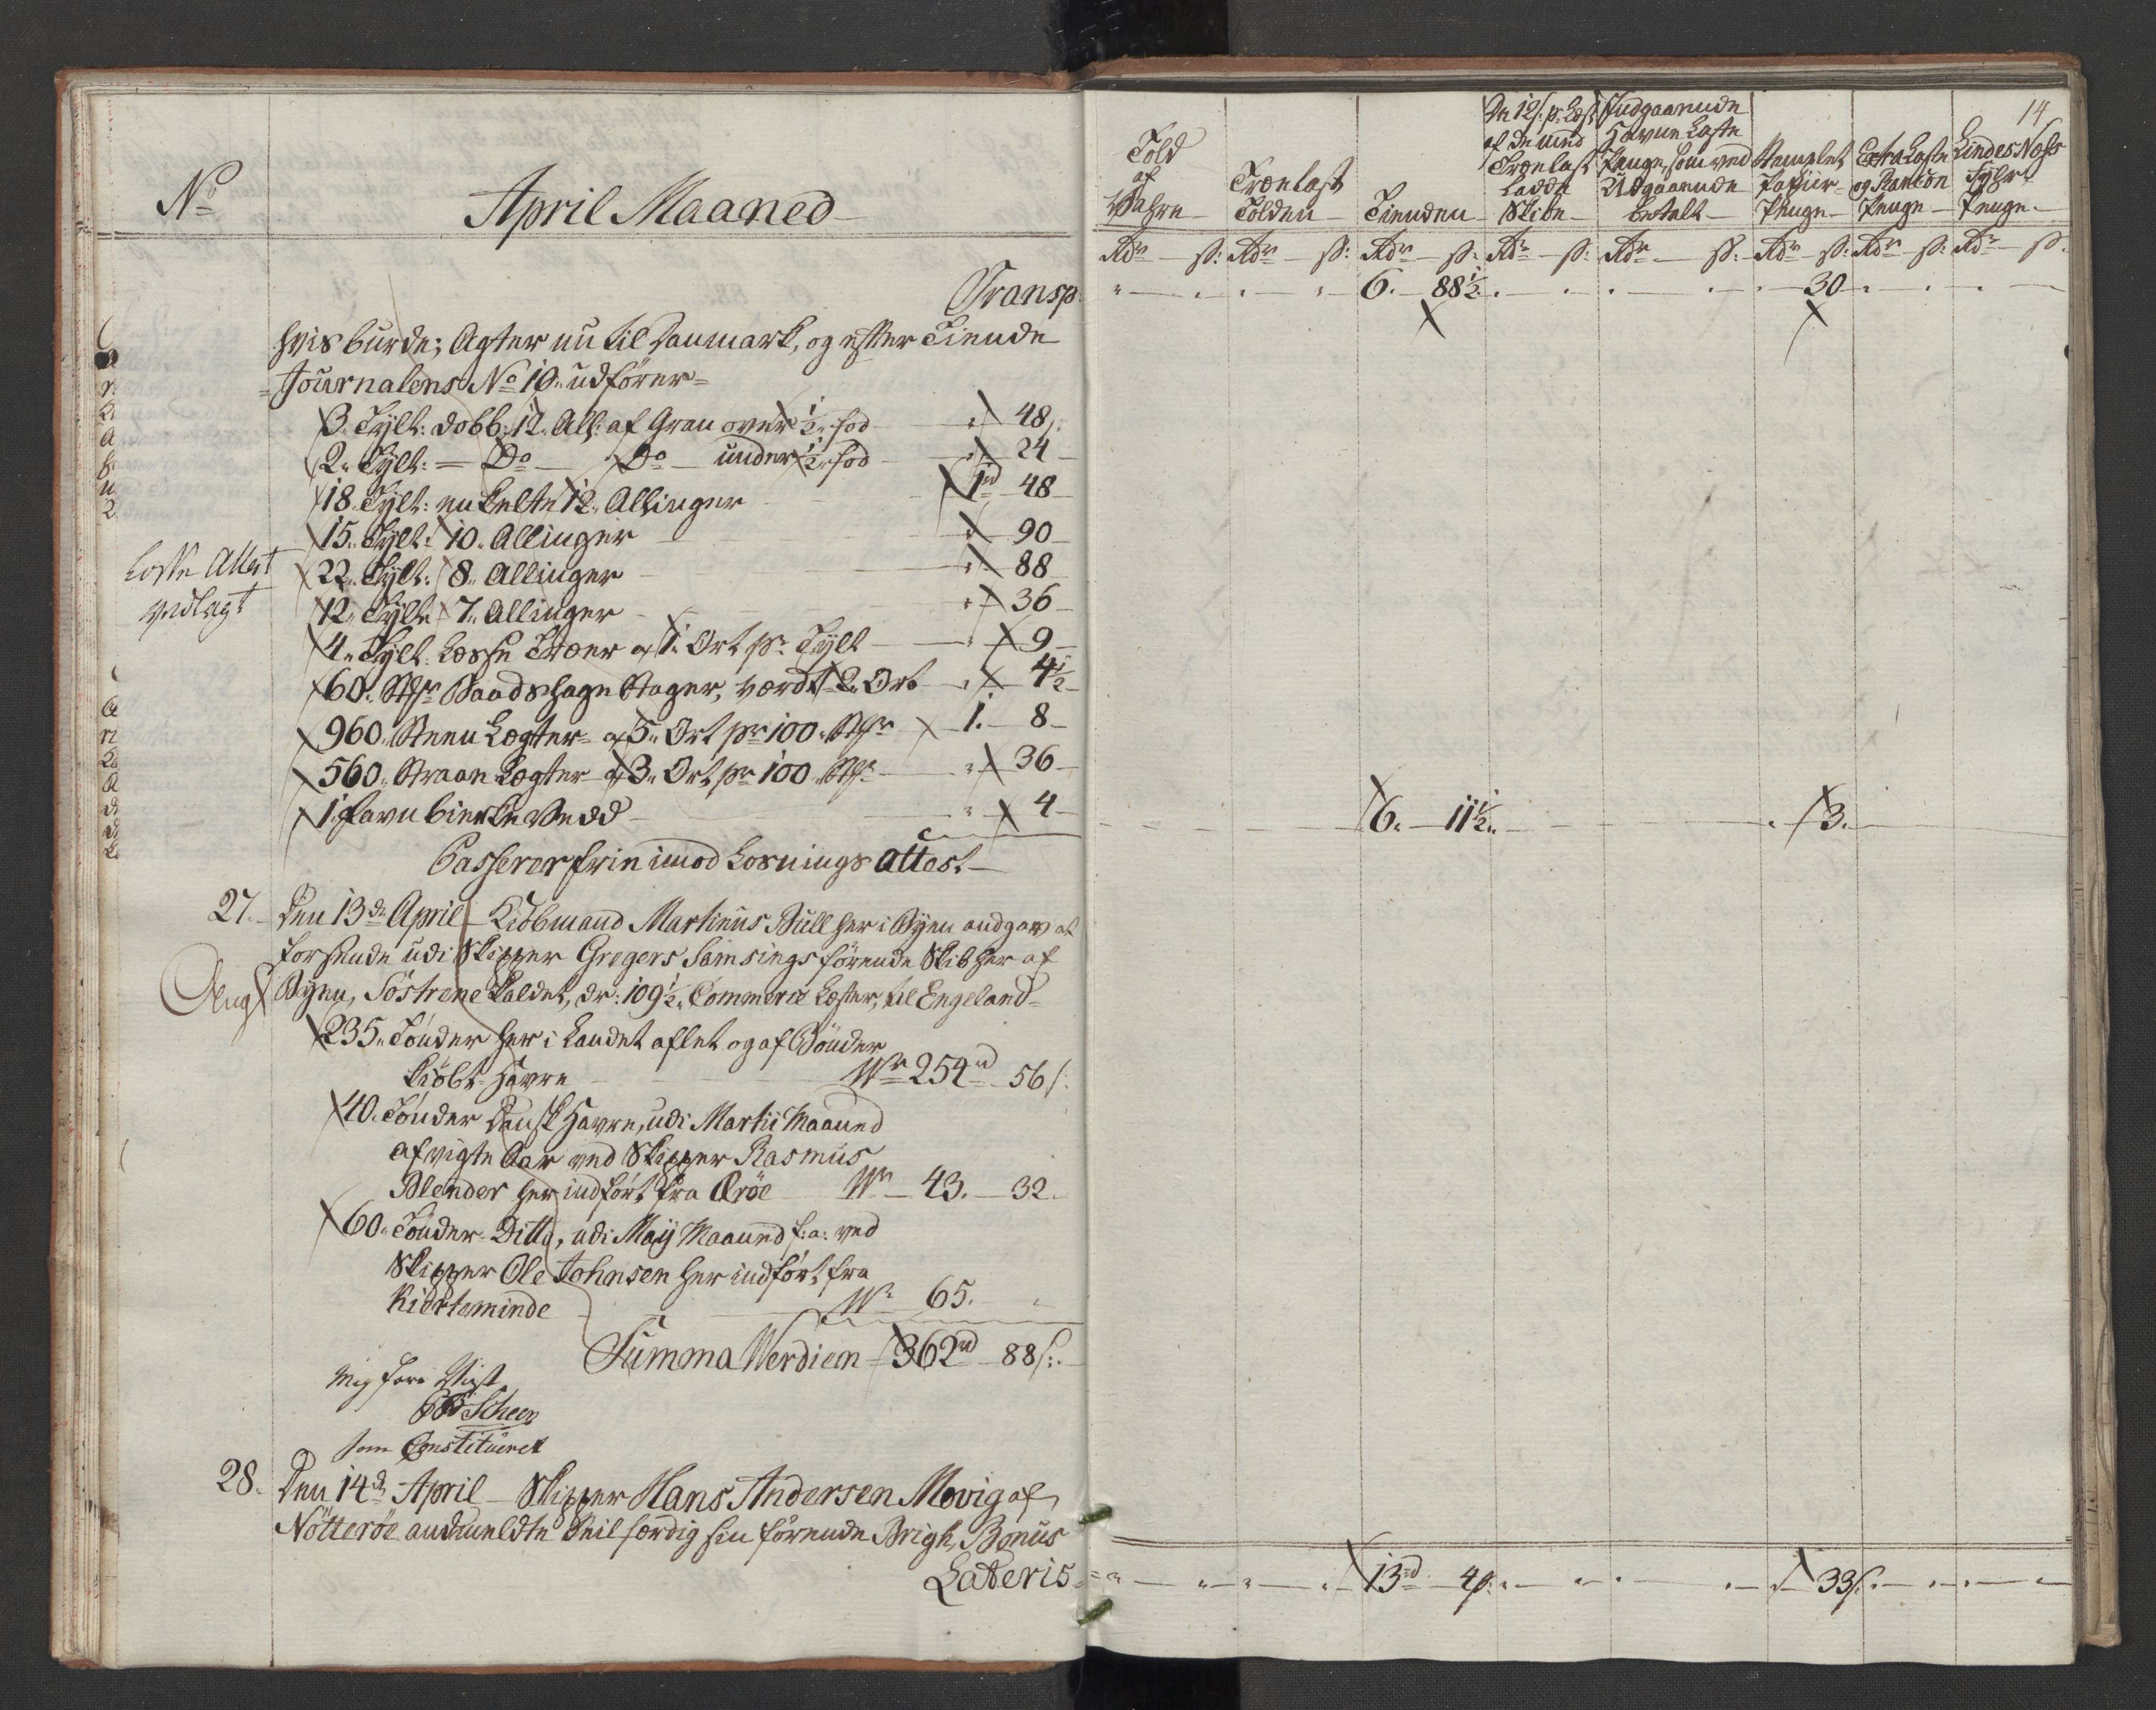 No
April Maaned
Transp:
hvis burde; Agter nu til Danmark, og efter Tiende
Journalens No 10. udförer=
3. Tylt: dobb: 12. All: af Gran over ½ fod „ 48 s:
2. Tylt: = Do Do under ½ fod „ 24
18. Tylt: enkelte 12. Allinger 1 rd 48
15. Tylt: 10. Allinger „ 90
22. Tylt: 8. Allinger „ 88
12. Tylt: 7. Allinger „ 36
4. Tylt: Lösse Træer a 1. Ort pr Tylt „ 9
60. Stkr Baadshage Stager, værdt 2. Ort „ 4½
960. Steen Lægter a 5. Ort pr 100 Stkr 1. 8
560. Straae Lægter a 3. Ort pr 100 Stkr „ 36
1. favn birke Vedd „ 4
Losse Attest
vedlagt
Passerer frie imod Losnings Attest
27. Den 13de April Kiöbmand Martinus Bull her i Byen andgav at
forsende udi Skipper Gregers Samsings förende Skib her af
Byen, Söstrene kaldet, dr: 109½ Commerce Læster, til Engeland=
235. Tönder her i Landet aflet og af Bönder
kiöbt Havre Wr 254 rd 56 s:
40. Tönder Dansk Havre, udi Martii Maaned
afvigte Aar ved Skipper Rasmus
Blender her indfört fra Æröe Wr 43. 32.
60. Tönder Ditto, udi Maij Maaned f: a: ved
Skipper Ole Johnsen her indfört fra
Kierteminde Wr 65. „
Summa Werdien 362 rd 88 s:
Mig fore Viist
Scheen
som Constitueret
28. Den 14de April Skipper Hans Andersen Movig af
Nötteröe anmeldte Seilfærdig sin förende Brigh, Bonus
Lateris
14
Told
af
Vahre
Trælast
Tolden
Tienden
De 12 s: pr Læst
af de med
Trælast
ladde
Skibe
Indgaaende
Havne Laste
Penge, som ved
Udgaaende
betalt
Stemplet
Papiir
Penge
Extra Laste
og Rantion
Penge
Lindes Næss
Fyhr
Penge
Rdr s: Rdr s: Rdr s: Rdr s: Rdr s: Rdr s: Rdr s: Rdr s:
6. 88½ 30
6. 11½ 3.
13 rd 4 s: 33 s: